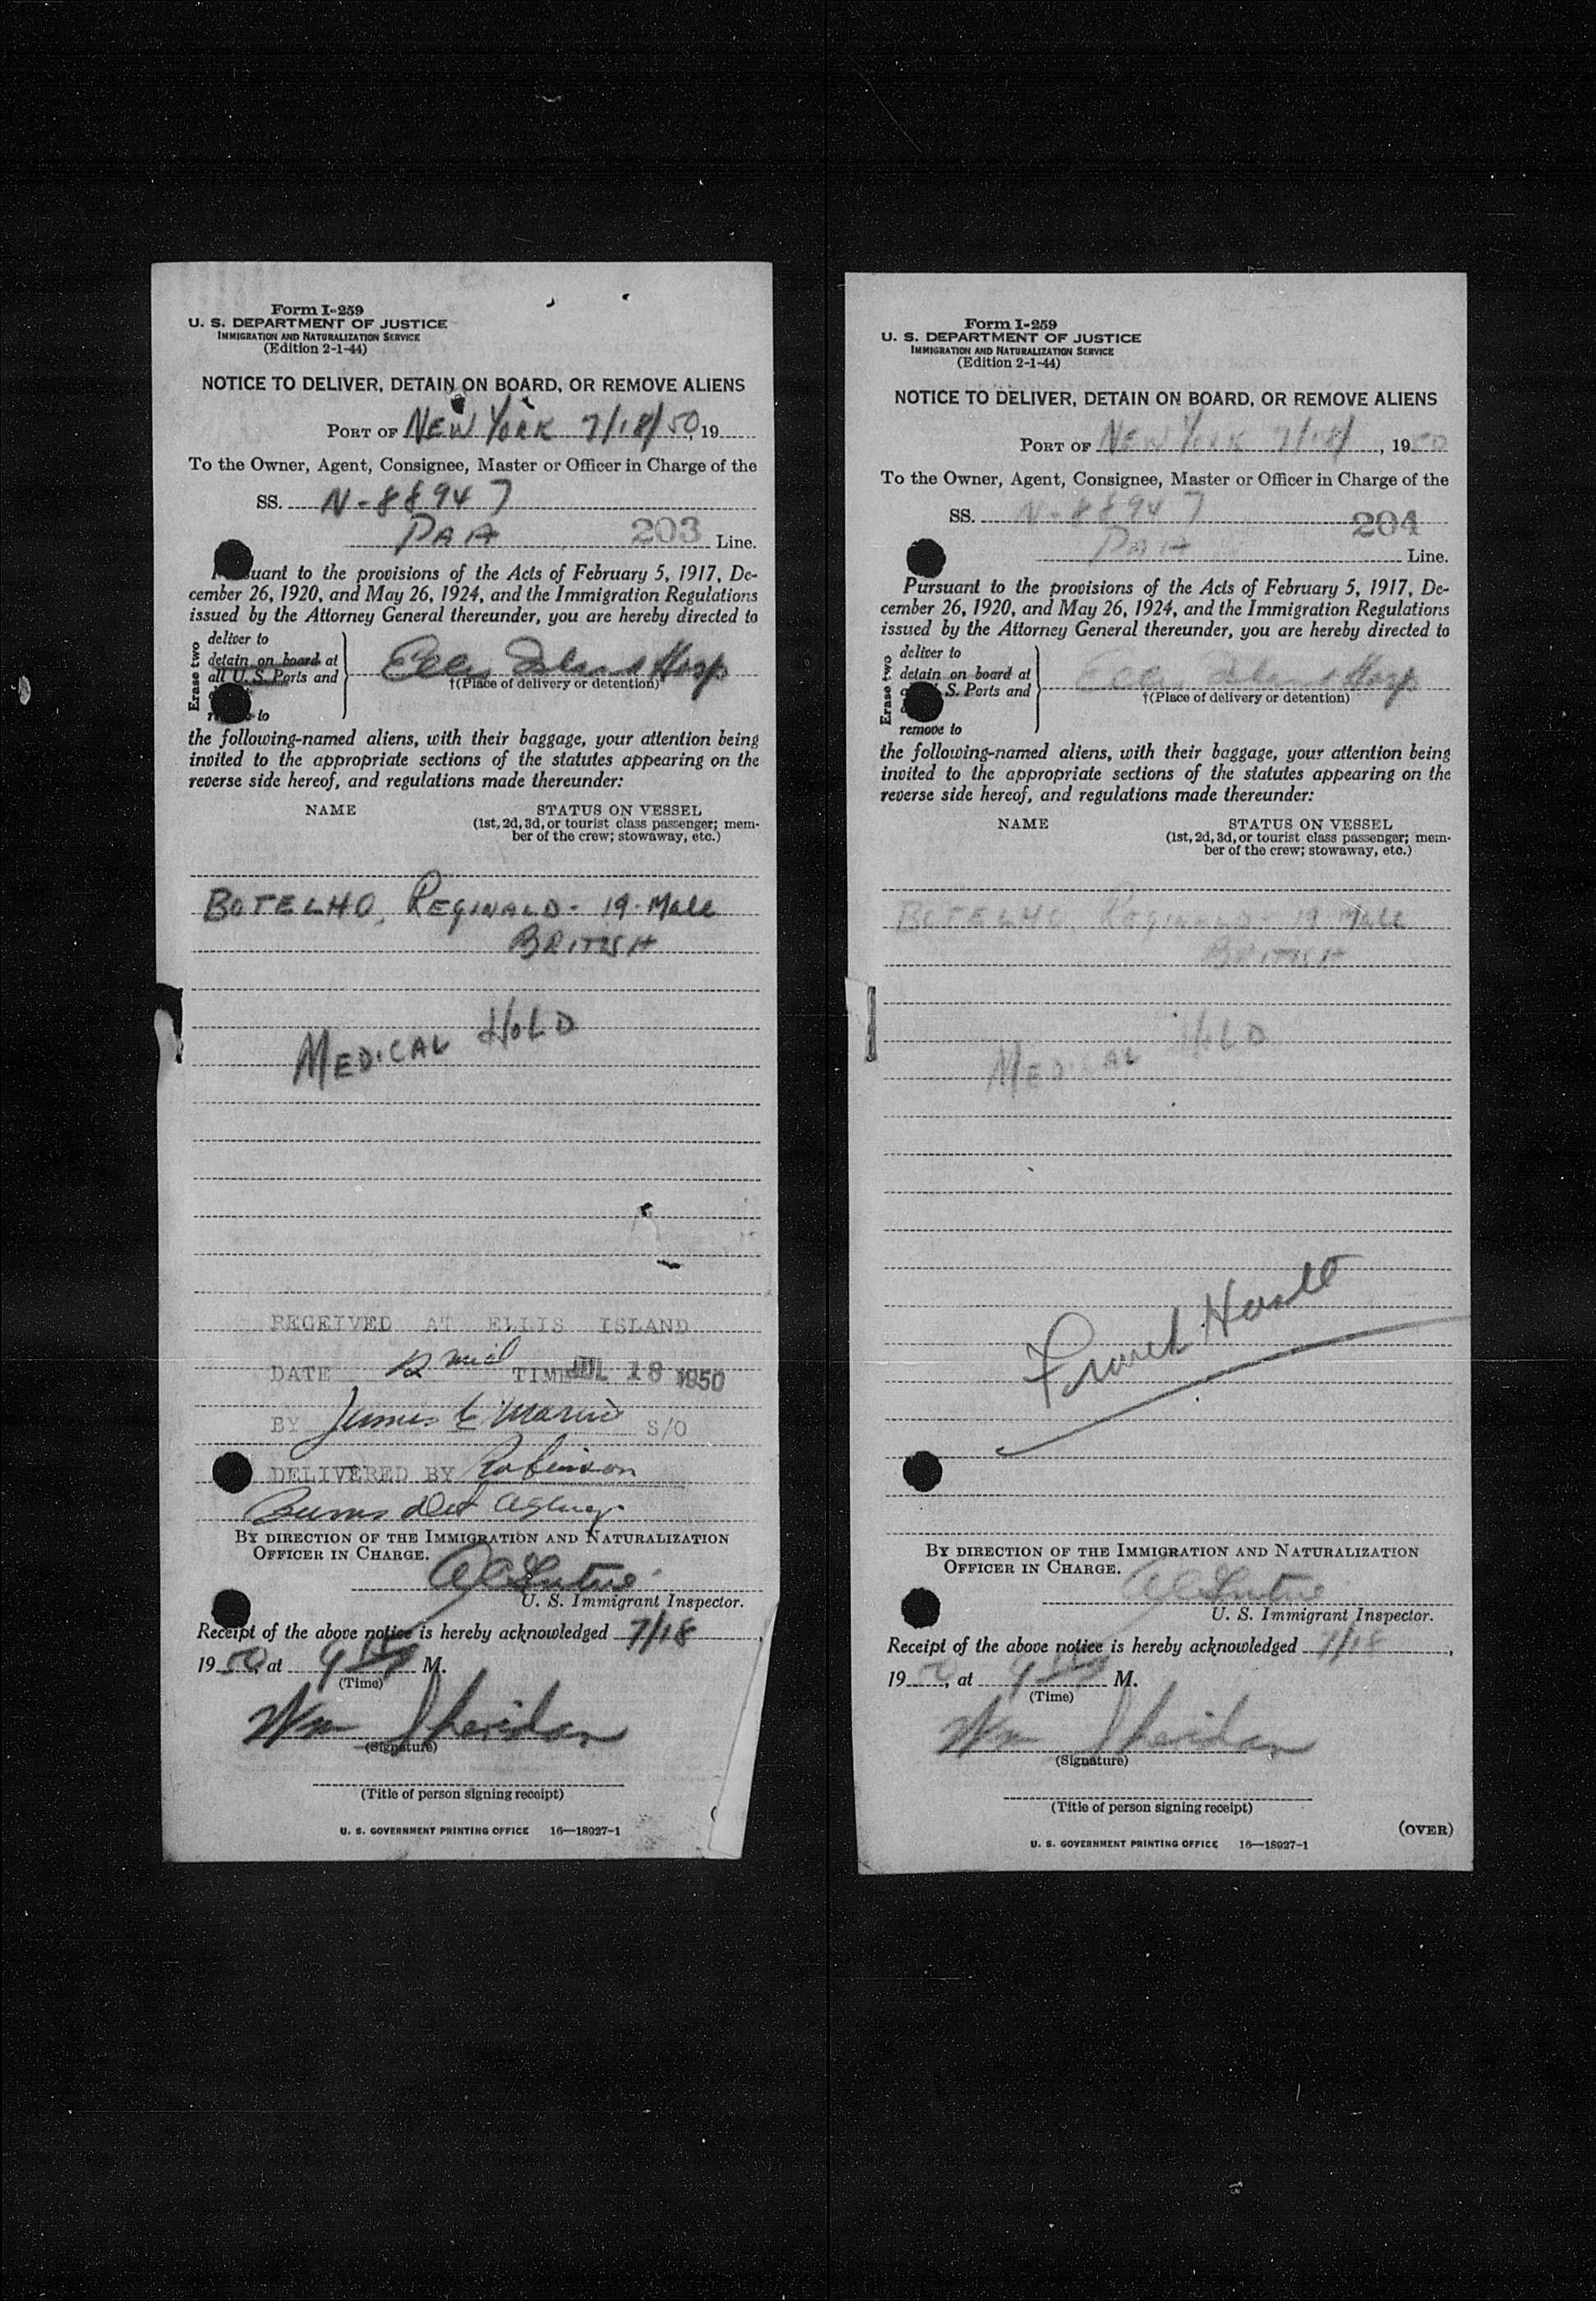 Form I-259
U. S. DEPARTMENT OF JUSTICE
IMMIGRATION AND NATURALIZATION SERVICE
(Edition 2-1-44)
NOTICE TO DELIVER, DETAIN ON BOARD, OR REMOVE ALIENS
PORT OF NEW YORK 7/18/50, 19
To the Owner, Agent, Consignee, Master or Officer in Charge of the
SS. N-88947
PAA 203 Line.
Pursuant to the provisions of the Acts of February 5, 1917, De-
cember 26, 1920, and May 26, 1924, and the Immigration Regulations
issued by the Attorney General thereunder, you are hereby directed to
Erase two
deliver to
detain on board at
all U. S. Ports and
to
Ellis Island Hosp
†(Place of delivery or detention)
the following-named aliens, with their baggage, your attention being
invited to the appropriate sections of the statutes appearing on the
reverse side hereof, and regulations made thereunder:
NAME STATUS ON VESSEL
(1st, 2d, 3d, or tourist class passenger; mem-
ber of the crew; stowaway, etc.)
BOTELHO, REGINALD - 19 - Male
BRITISH
MEDICAL HOLD
RECEIVED AT ELLIS ISLAND
DATE 12 mid TIME JUL 18 1950
BY James S/O
DELIVERED BY Robinson
Burns Det Agency
BY DIRECTION OF THE IMMIGRATION AND NATURALIZATION
OFFICER IN CHARGE.
U. S. Immigrant Inspector.
Receipt of the above notice is hereby acknowledged 7/18,
1950, at 9 M.
(Time)
Wm Sheridan
(Signature)
(Title of person signing receipt)
U. S. GOVERNMENT PRINTING OFFICE 16—18927-1
Form I-259
U. S. DEPARTMENT OF JUSTICE
IMMIGRATION AND NATURALIZATION SERVICE
(Edition 2-1-44)
NOTICE TO DELIVER, DETAIN ON BOARD, OR REMOVE ALIENS
PORT OF NEW YORK 7/18/, 1950
To the Owner, Agent, Consignee, Master or Officer in Charge of the
SS. N-88947
204
PAA Line.
Pursuant to the provisions of the Acts of February 5, 1917, De-
cember 26, 1920, and May 26, 1924, and the Immigration Regulations
issued by the Attorney General thereunder, you are hereby directed to
Erase two
deliver to
detain on board at
S. Ports and
remove to
Ellis Island Hosp
†(Place of delivery or detention)
the following-named aliens, with their baggage, your attention being
invited to the appropriate sections of the statutes appearing on the
reverse side hereof, and regulations made thereunder:
NAME STATUS ON VESSEL
(1st, 2d, 3d, or tourist class passenger; mem-
ber of the crew; stowaway, etc.)
BOTELHO, REGINALD - 19 Male
BRITISH
MEDICAL HOLD
BY DIRECTION OF THE IMMIGRATION AND NATURALIZATION
OFFICER IN CHARGE.
U. S. Immigrant Inspector.
Receipt of the above notice is hereby acknowledged 7/18,
1950, at 9 M.
(Time)
Wm Sheridan
(Signature)
(Title of person signing receipt)
(OVER)
U. S. GOVERNMENT PRINTING OFFICE 16—18927-1